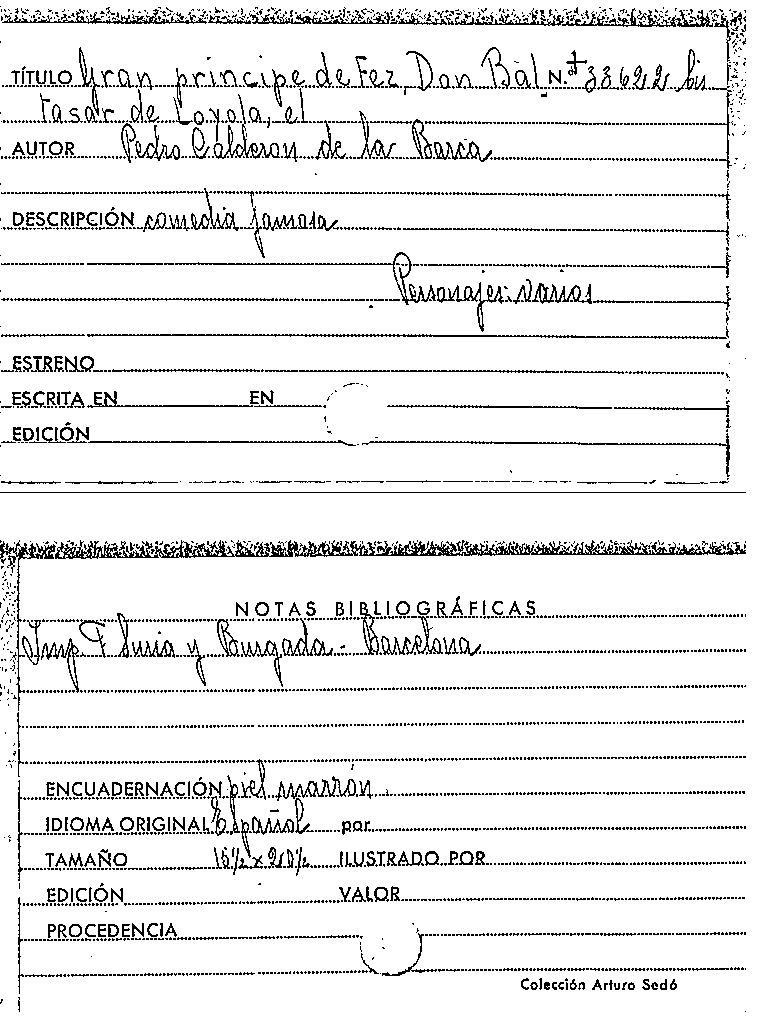 TÍTULO Gran principe de Fez, Don Bal N.º 33622 bis
tasar de Loyola, el
AUTOR Pedro Calderon de la Barca
DESCRIPCIÓN comedia famosa
Personajes: varios
ESTRENO
ESCRITA EN EN
EDICIÓN
NOTAS BIBLIOGRÁFICAS
Imp F Suria y Burgada - Barcelona
ENCUADERNACIÓN piel marrón
IDIOMA ORIGINAL Español por
TAMAÑO ILUSTRADO POR
EDICIÓN VALOR
PROCEDENCIA
Colección Arturo Sedó